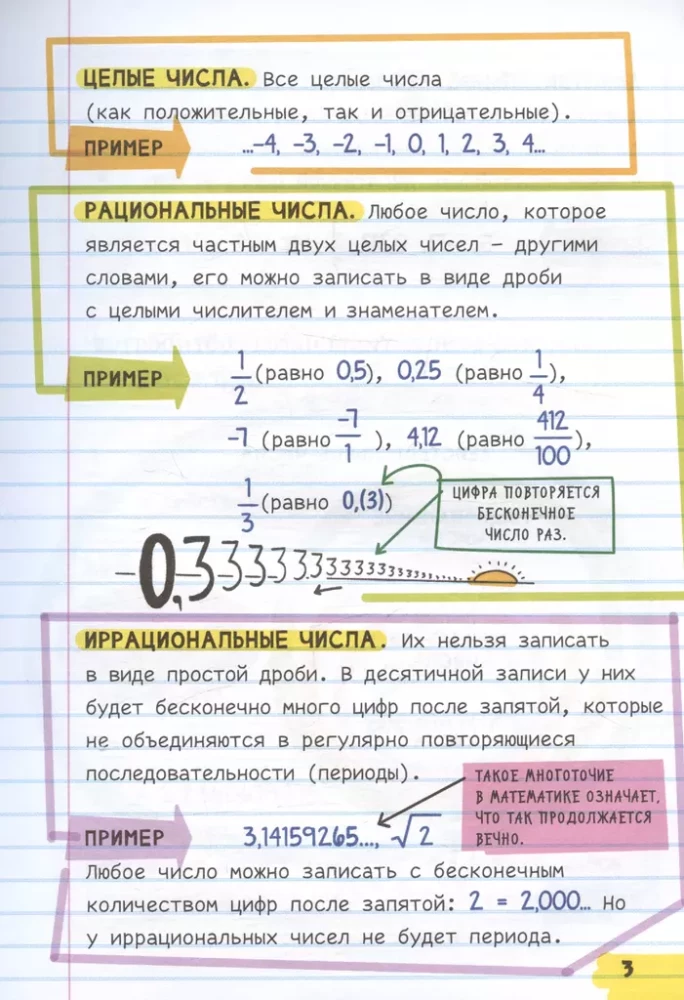 ЦЕЛЫЕ ЧИСЛА. Все целые числа
(как положительные, так и отрицательные).
ПРИМЕР ...–4, –3, –2, –1, 0, 1, 2, 3, 4...
РАЦИОНАЛЬНЫЕ ЧИСЛА. Любое число, которое
является частным двух целых чисел – другими
словами, его можно записать в виде дроби
с целыми числителем и знаменателем.
ПРИМЕР 1/2 (равно 0,5), 0,25 (равно 1/4),
–7 (равно –7/1), 4,12 (равно 412/100),
1/3 (равно 0,(3))
ЦИФРА ПОВТОРЯЕТСЯ
БЕСКОНЕЧНОЕ
ЧИСЛО РАЗ.
0,33333333333333333
ИРРАЦИОНАЛЬНЫЕ ЧИСЛА. Их нельзя записать
в виде простой дроби. В десятичной записи у них
будет бесконечно много цифр после запятой, которые
не объединяются в регулярно повторяющиеся
последовательности (периоды).
ТАКОЕ МНОГОТОЧИЕ
В МАТЕМАТИКЕ ОЗНАЧАЕТ,
ЧТО ТАК ПРОДОЛЖАЕТСЯ
ВЕЧНО.
ПРИМЕР 3,14159265..., √2
Любое число можно записать с бесконечным
количеством цифр после запятой: 2 = 2,000... Но
у иррациональных чисел не будет периода.
3